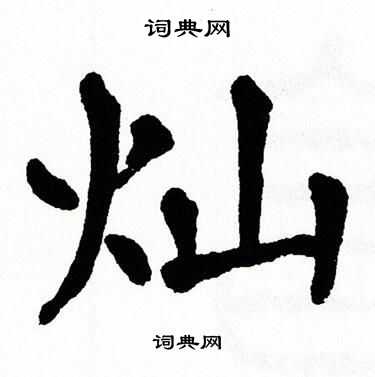 词典网
灿
词典网